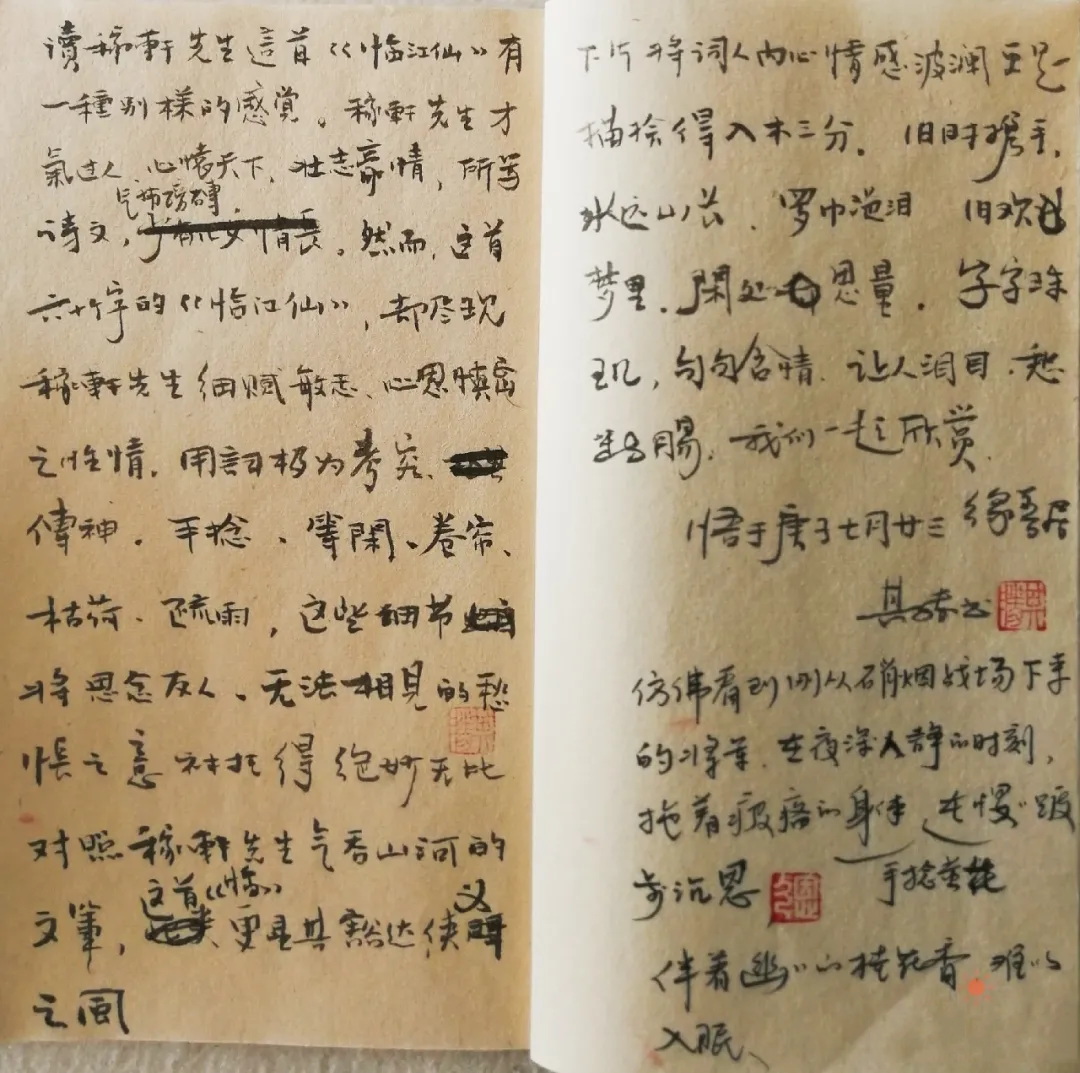 讀稼軒先生這首《臨江仙》有
一種别樣的感觉。稼軒先生才
氣过人、心懷天下、壮志豪情，所写
气势磅礴
诗文，。然而，这首
六十字的《临江仙》，却尽现
稼軒先生细腻敏感、心思慎密
之性情。用詞极为考究、
傳神。手捻、單閑、卷帘、
枯荷、疏雨，这些细节
将思念友人、无法相見的愁
悵之意衬托得绝妙无比
对照稼軒先生气吞山河的
这首《临》
文筆，更显其豁达侠义
之風
下片将词人内心情感波澜更是
描捻得入木三分。旧时携手，
水远山长、罗巾浥泪 旧欢
梦里，閑处思量，字字珠
玑，句句含情、让人泪目、愁
断肠，我们一起欣赏
悟于庚子七月廿三 缘吾居
其春书
仿佛看到刚从硝烟战场下来
的将军，在夜深人静的时刻，
拖着疲痞的身体 在慢慢踱
手捻黄花
步沉思
伴着幽幽的桂花香 难以
入眠、